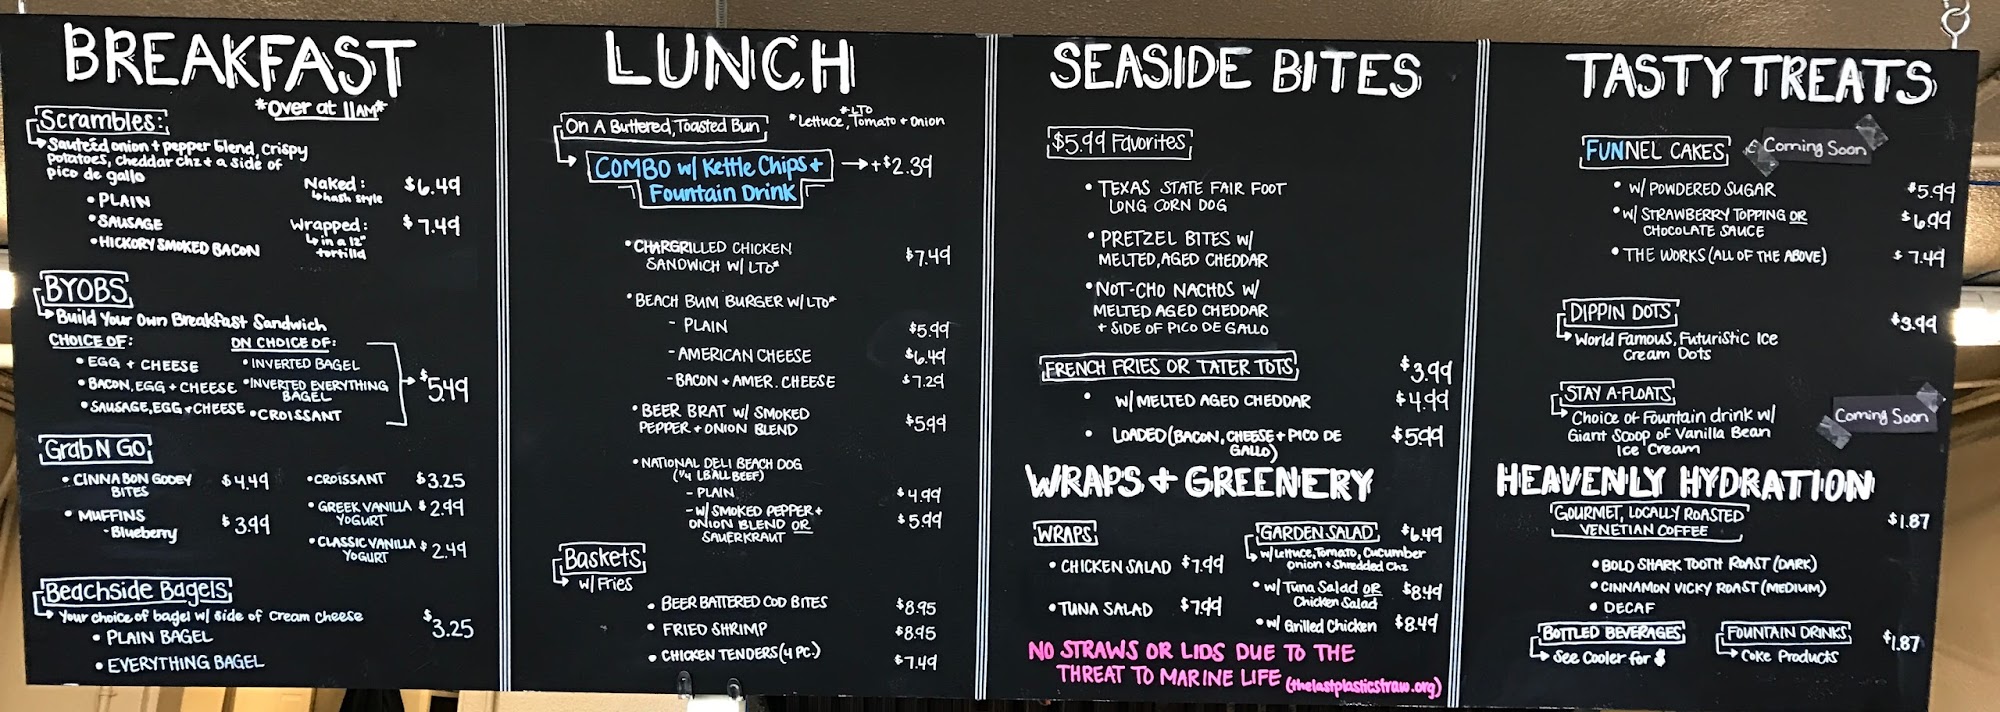 BREAKFAST
*Over at 11AM*
Scrambles:
Sauteéd onion + pepper blend, crispy
potatoes, cheddar chz + a side of
pico de gallo
• PLAIN
• SAUSAGE
• HICKORY SMOKED BACON
Naked: $6.49
hash style
Wrapped: $7.49
in a 12"
tortilla
BYOBS
Build Your Own Breakfast Sandwich
CHOICE OF:
• EGG + CHEESE
• BACON, EGG + CHEESE
• SAUSAGE, EGG + CHEESE
ON CHOICE OF:
• INVERTED BAGEL
• INVERTED EVERYTHING
BAGEL
• CROISSANT
$5.49
Grab N Go
• CINNABON GOOEY $4.49
BITES
• MUFFINS $3.99
- Blueberry
• CROISSANT $3.25
• GREEK VANILLA $2.99
YOGURT
• CLASSIC VANILLA $2.49
YOGURT
Beachside Bagels
Your choice of bagel w/ side of cream cheese $3.25
• PLAIN BAGEL
• EVERYTHING BAGEL
LUNCH
On A Buttered, Toasted Bun
*LTO
*Lettuce, Tomato + Onion
COMBO w/ Kettle Chips + → +$2.39
Fountain Drink
• CHARGRILLED CHICKEN $7.49
SANDWICH W/ LTO*
• BEACH BUM BURGER W/ LTO*
- PLAIN $5.99
- AMERICAN CHEESE $6.49
- BACON + AMER. CHEESE $7.29
• BEER BRAT W/ SMOKED $5.99
PEPPER + ONION BLEND
• NATIONAL DELI BEACH DOG
(1/4 LB ALL BEEF)
- PLAIN $4.99
- W/ SMOKED PEPPER + $5.99
ONION BLEND OR
SAUERKRAUT
Baskets
w/ Fries
• BEER BATTERED COD BITES $8.95
• FRIED SHRIMP $8.95
• CHICKEN TENDERS (4 PC.) $7.49
SEASIDE BITES
$5.99 Favorites
• TEXAS STATE FAIR FOOT
LONG CORN DOG
• PRETZEL BITES W/
MELTED, AGED CHEDDAR
• NOT-CHO NACHOS W/
MELTED AGED CHEDDAR
+ SIDE OF PICO DE GALLO
FRENCH FRIES OR TATER TOTS $3.99
• W/ MELTED AGED CHEDDAR $4.99
• LOADED (BACON, CHEESE + PICO DE $5.99
GALLO)
WRAPS + GREENERY
WRAPS
• CHICKEN SALAD $7.99
• TUNA SALAD $7.99
GARDEN SALAD $6.49
w/ Lettuce, Tomato, Cucumber
onion + Shredded Chz
• w/ Tuna Salad OR $8.49
Chicken Salad
• w/ Grilled Chicken $8.49
NO STRAWS OR LIDS DUE TO THE
THREAT TO MARINE LIFE (thelastplasticstraw.org)
TASTY TREATS
FUNNEL CAKES Coming Soon
• W/ POWDERED SUGAR $5.99
• W/ STRAWBERRY TOPPING OR $6.99
CHOCOLATE SAUCE
• THE WORKS (ALL OF THE ABOVE) $7.49
DIPPIN DOTS $3.99
World Famous, Futuristic Ice
Cream Dots
STAY A-FLOATS Coming Soon
Choice of Fountain drink w/
Giant Scoop of Vanilla Bean
Ice Cream
HEAVENLY HYDRATION
GOURMET, LOCALLY ROASTED $1.87
VENETIAN COFFEE
• BOLD SHARK TOOTH ROAST (DARK)
• CINNAMON VICKY ROAST (MEDIUM)
• DECAF
BOTTLED BEVERAGES
See Cooler for $
FOUNTAIN DRINKS $1.87
Coke Products